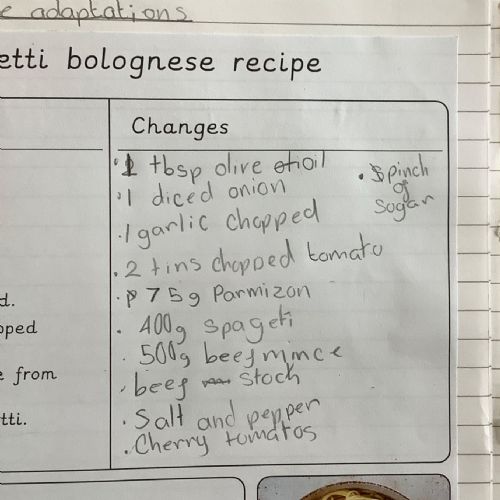 e adaptations
etti bolognese recipe
Changes
· 1 tbsp olive oil
· 1 diced onion
· 1 garlic chopped
· 2 tins chopped tomato
· 75g Parmizon
· 400g spageti
· 500g beef mince
· beef stock
· Salt and pepper
· Cherry tomatos
· Spinch
of
Sugar
d.
pped
e from
tti.